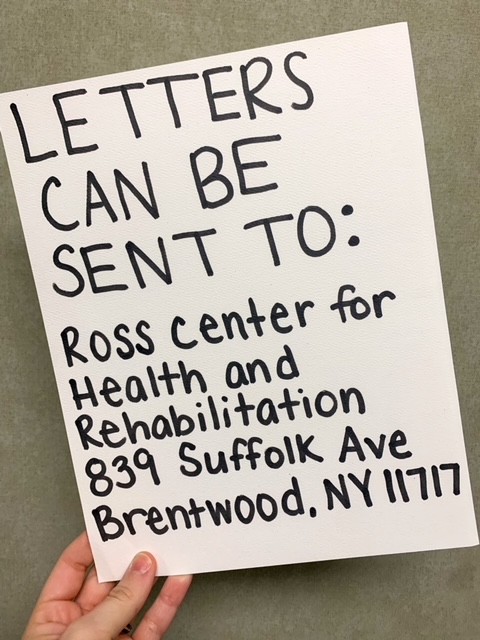 LETTERS
CAN BE
SENT TO:
Ross center for
Health and
Rehabilitation
839 Suffolk Ave
Brentwood, NY 11717